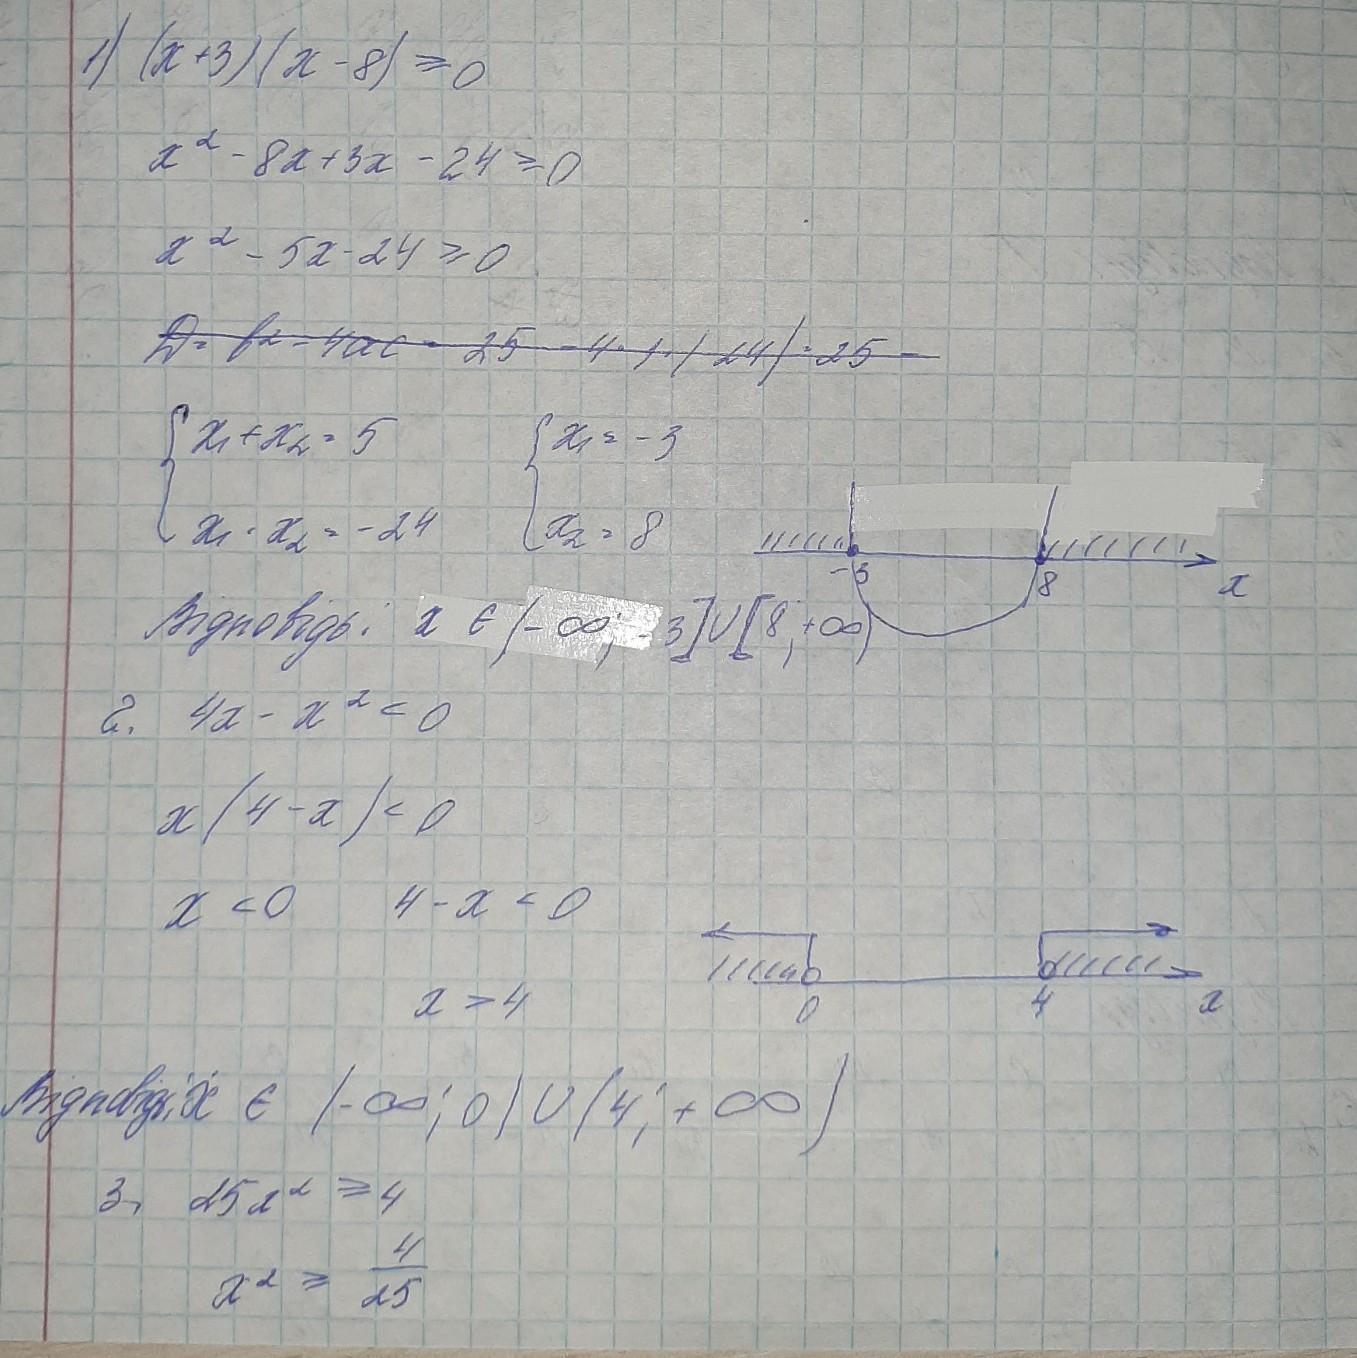 1) (x+3)(x-8)≥0
x² - 8x+3x - 24≥0
x² - 5x-24≥0
D= b²-4ac = 25 -4·1·(-24)=25 -
{x₁+x₂=5 {x₁=-3
x₁·x₂=-24 x₂=8
-3 8 x
Відповідь: x ∈ (-∞; -3]∪[8; +∞)
2. 4x - x² < 0
x(4-x)<0
x <0 4-x <0
x >4
0 4 x
Відповідь: x ∈ (-∞; 0)∪(4; +∞)
3, 25x² ≥4
x² ≥ 4/25